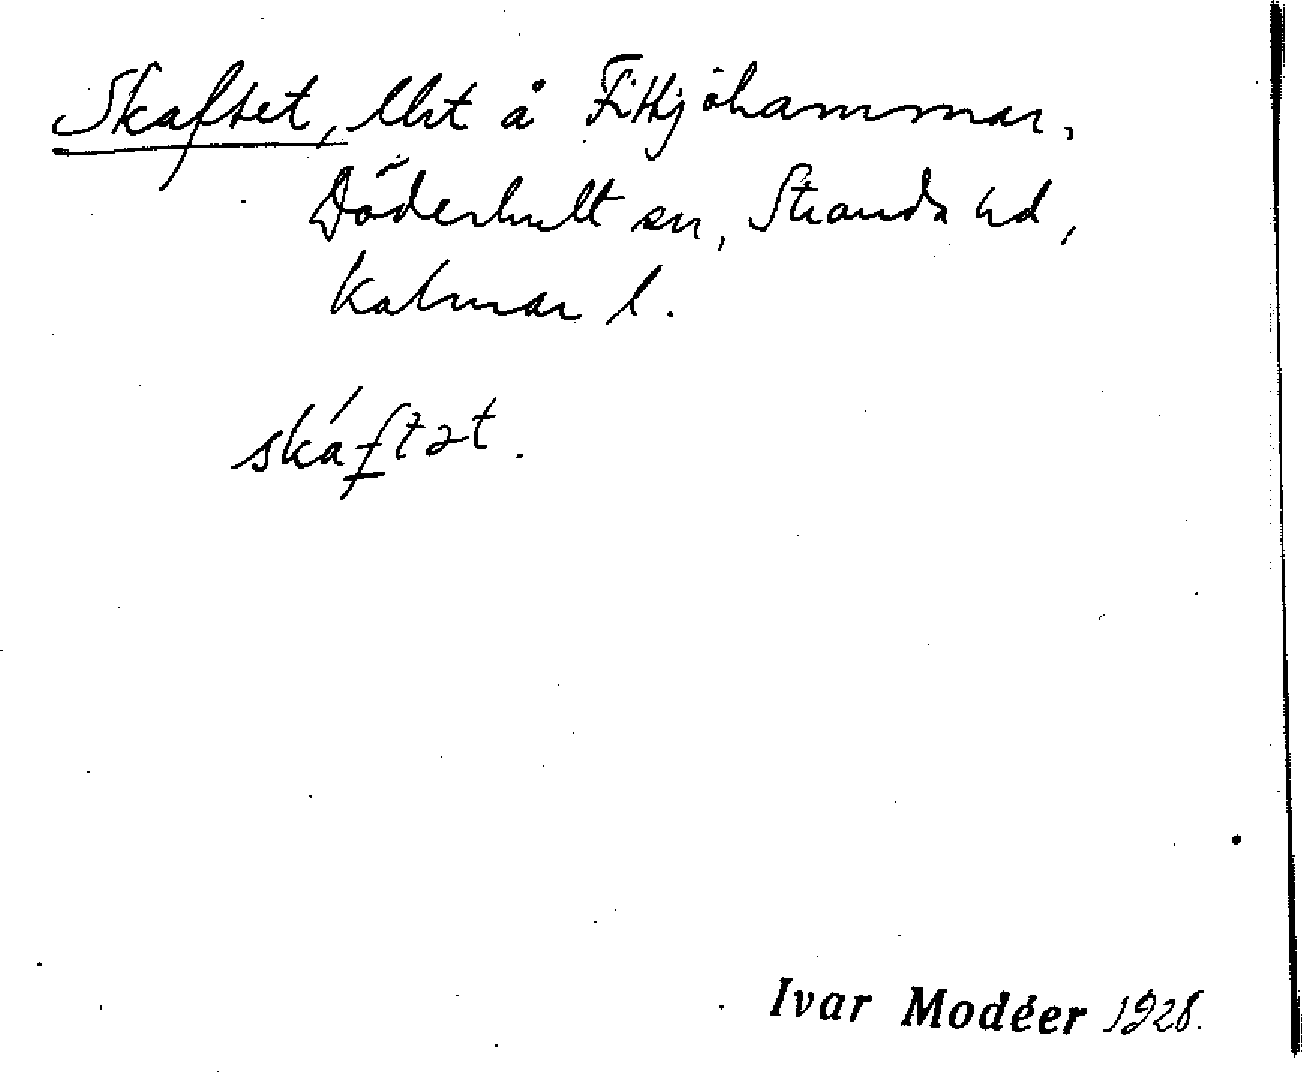 Skaftet, lht å Fittjöhammar,
Döderhult sn, Stranda hd,
Kalmar l.
skáftət.
Ivar Modéer 1928.